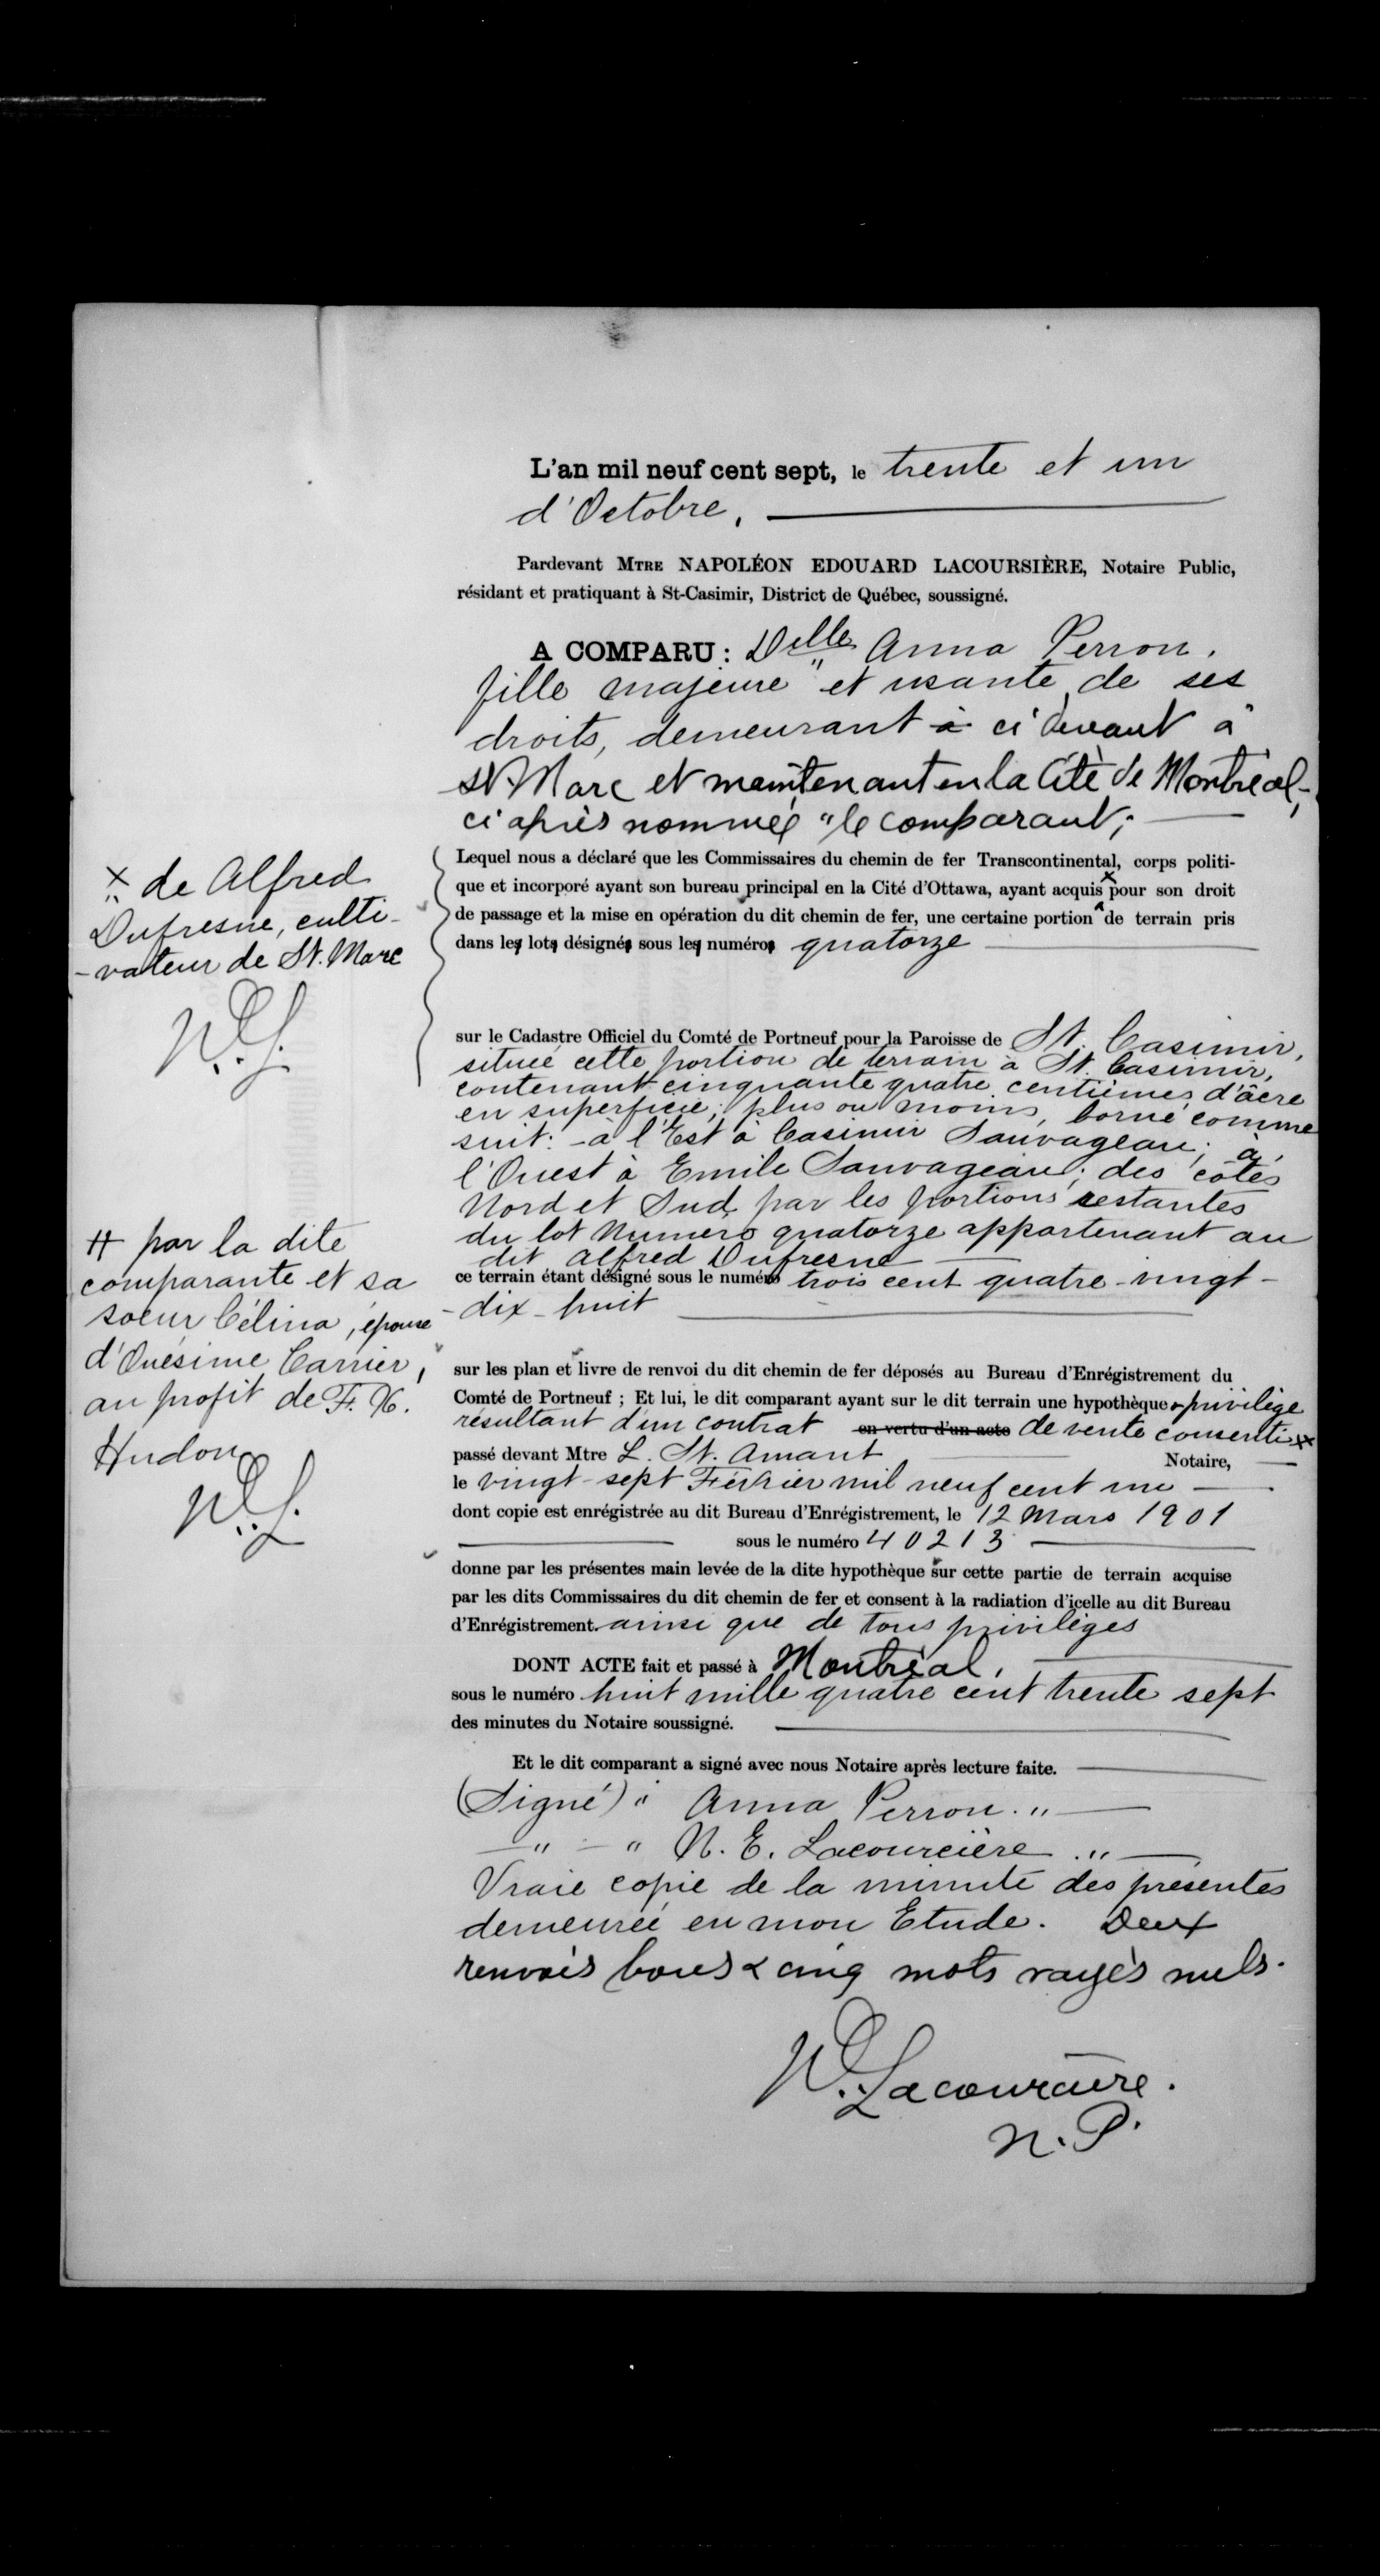 L'an mil neuf cent sept, le trente et un
d'Octobre.
Pardevant MTRE NAPOLÉON EDOUARD LACOURSIÈRE, Notaire Public,
résidant et pratiquant à St-Casimir, District de Québec, soussigné.
A COMPARU : Delle Anna Perron,
fille majeure et usante de ses
droits, demeurant à ci devant à
St Marc et maintenant en la Cité de Montréal,
ci après nommée "le comparant;
Lequel nous a déclaré que les Commissaires du chemin de fer Transcontinental, corps politi-
que et incorporé ayant son bureau principal en la Cité d'Ottawa, ayant acquis x pour son droit
de passage et la mise en opération du dit chemin de fer, une certaine portion de terrain pris
dans les lots désignés sous les numéros quatorze
x de Alfred
Dufresne, culti-
-vateur de St. Marc
N.E.L.
sur le Cadastre Officiel du Comté de Portneuf pour la Paroisse de St. Casimir,
située cette portion de terrain à St. Casimir,
contenant cinquante quatre centièmes d'âcre
en superficie; plus ou moins, borné comme
suit: - à l'Est à Casimir Sauvageau; à
l'Ouest à Emile Sauvageau; des côtés
Nord et Sud par les portions restantes
du lot Numéro quatorze appartenant au
dit Alfred Dufresne
ce terrain étant désigné sous le numéro trois cent quatre-vingt-
-dix-huit
sur les plan et livre de renvoi du dit chemin de fer déposés au Bureau d'Enrégistrement du
Comté de Portneuf ; Et lui, le dit comparant ayant sur le dit terrain une hypothèque & privilège
résultant d'un contrat en vertu d'un acte de vente consenti #
passé devant Mtre L. St. Amant Notaire,
le vingt-sept Février mil neuf cent un
dont copie est enrégistrée au dit Bureau d'Enrégistrement, le 12 Mars 1901
sous le numéro 40213
# par la dite
comparante et sa
soeur Célina, épouse
d'Onésime Carrier,
au profit de F. X.
Hudon
N.E.L.
donne par les présentes main levée de la dite hypothèque sur cette partie de terrain acquise
par les dits Commissaires du dit chemin de fer et consent à la radiation d'icelle au dit Bureau
d'Enrégistrement. ainsi que de tous privilèges
DONT ACTE fait et passé à Montréal,
sous le numéro huit mille quatre cent trente sept
des minutes du Notaire soussigné.
Et le dit comparant a signé avec nous Notaire après lecture faite.
(Signé) " Anna Perron. "
" " N. E. Lacourcière. "
Vraie copie de la minute des présentes
demeurée en mon Etude. Deux
renvois bons & cinq mots rayés nuls.
N.E. Lacourcière.
N.P.